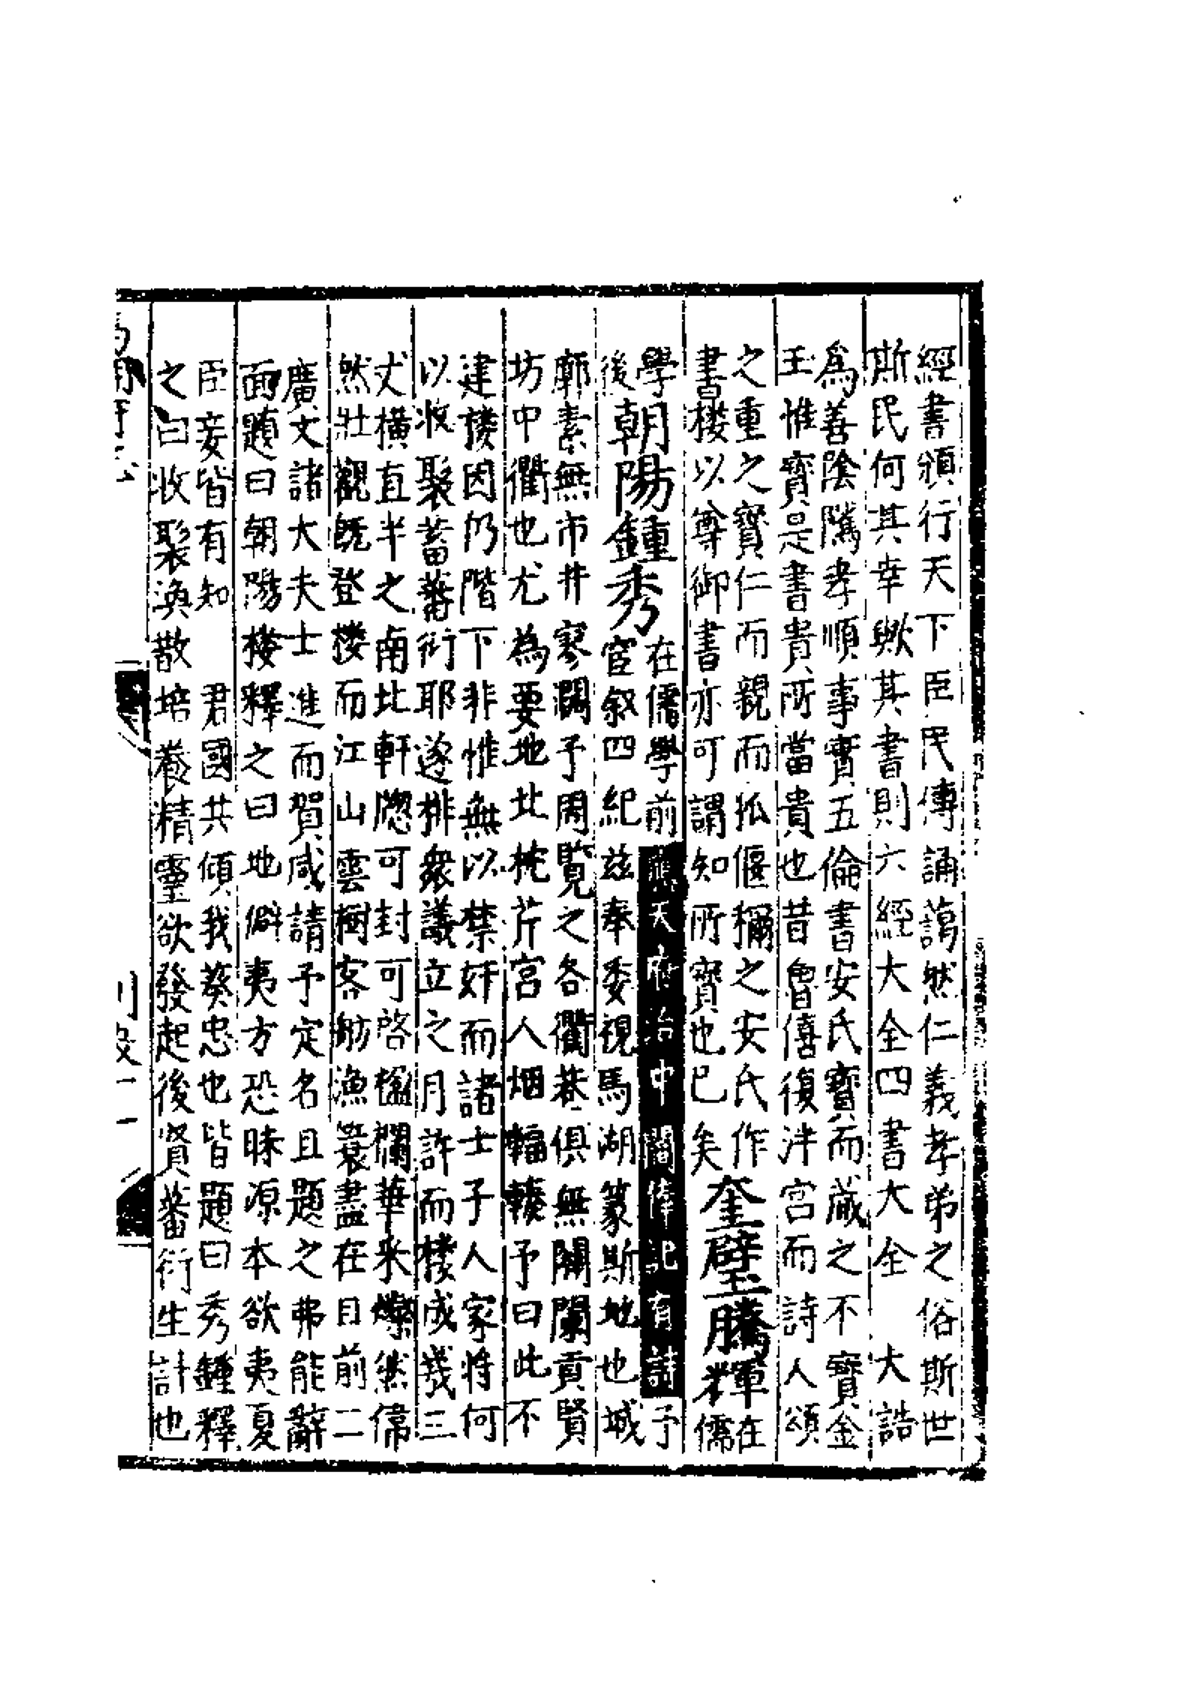 經書頒行天下臣民傳誦藹然仁義孝弟之俗斯世
斯民何其幸歟其書則六經大全四書大全 大誥
為善陰騭孝順事實五倫書安氏寶而藏之不寶金
玉惟寶是書貴所當貴也昔魯僖復泮宮而詩人頌
之重之寶仁而親而狐偃稱之安氏作
書樓以尊御書亦可謂知所寶也已矣
奎璧騰輝在
儒
學
後
朝陽鍾秀
在儒學前應天府治中閻倬記有詩予
宦叙四紀兹奉委視馬湖篆斯地也城
廓素無市井寥濶予周覽之各衢巷俱無闤闠貢賢
坊中衢也尤為要地北枕芹宮人烟輻輳予曰此不
建樓因仍階下非惟無以禁奸而諸士子人家将何
以收聚蓄蕃衍耶遂排衆議立之月許而樓成我三
丈横直半之南北軒牕可封可啓楹欄華采爍然偉
然壯觀既登樓而江山雲樹客舫漁簑盡在目前二
廣文諸大夫士進而賀咸請予定名且題之弗能辭
面題曰朝陽樓釋之曰地僻夷方恐昧源本欲夷夏
臣妾皆有知 君國共傾我葵忠也皆題曰秀鍾釋
之曰收聚渙散培養精靈欲發起後賢蕃衍生計也